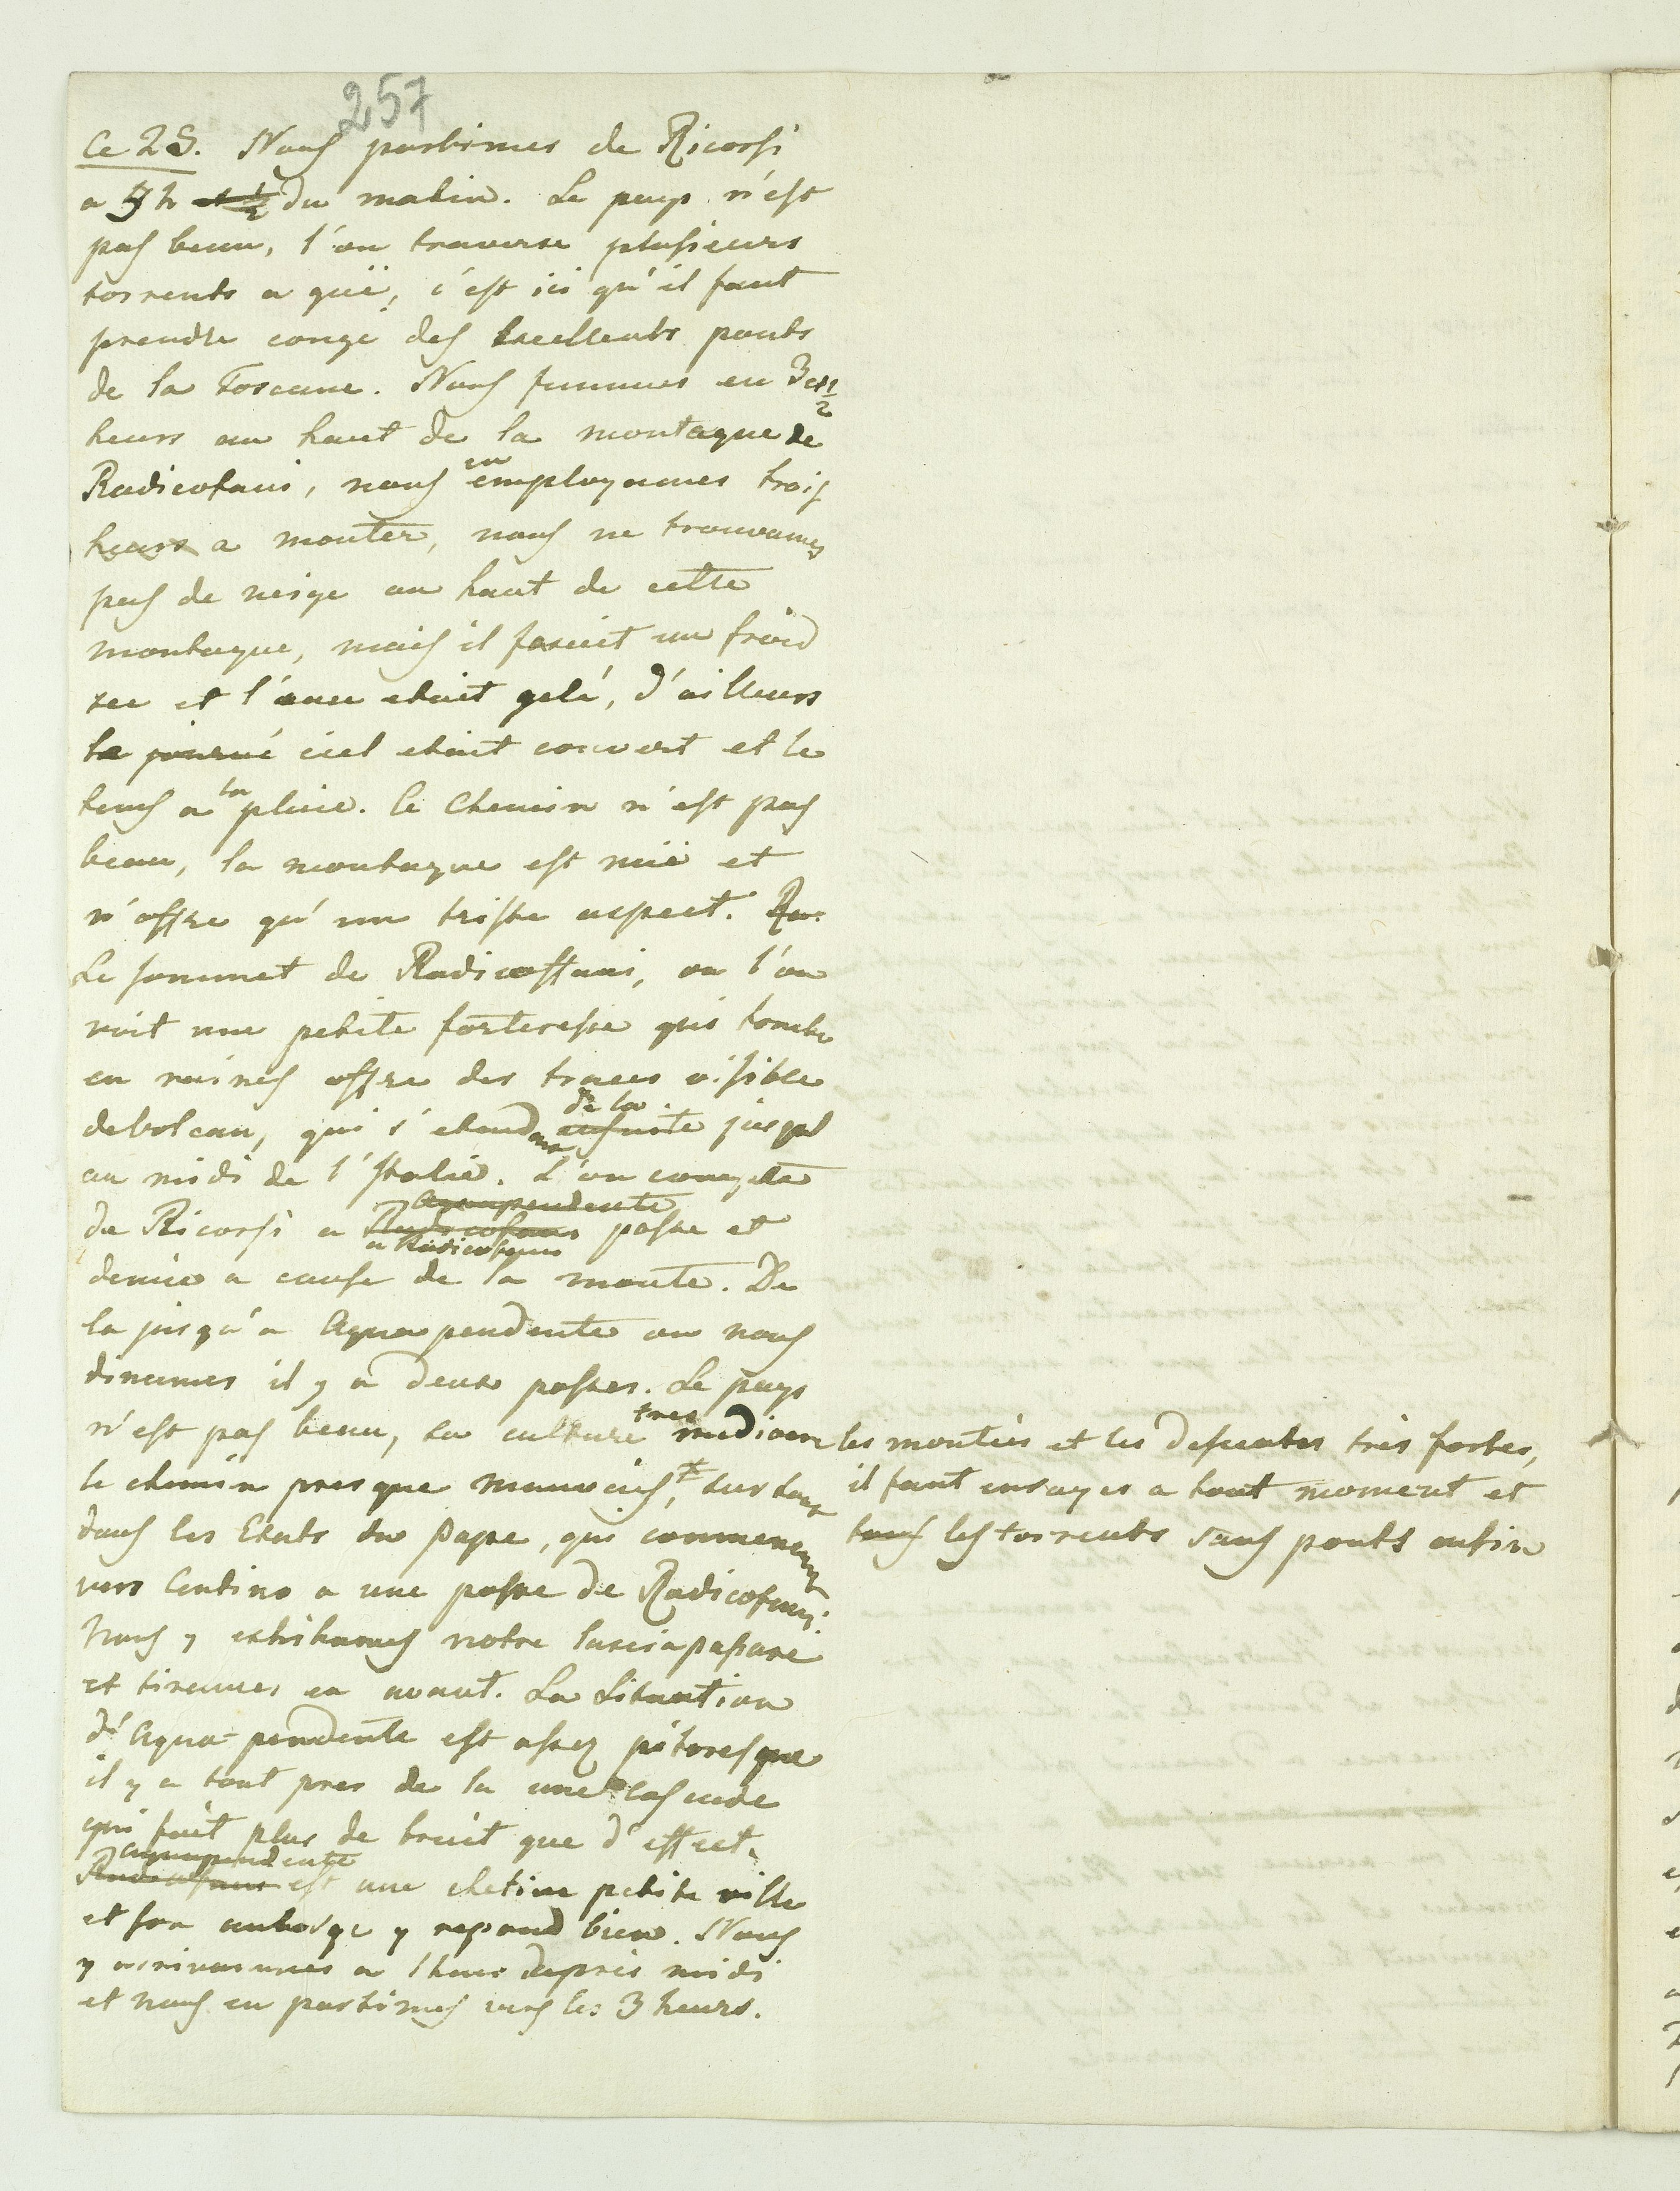 257
Ce 23. Nous partimes de Ricorsi
a 5 h et ½ du matin. Le pays n'est
pas beau, l'on traverse plusieurs
torrents a guè, c'est ici qu'il faut
prendre congé des excellents ponts
de la Toscane. Nous fummes en 3 et ½
heurs au haut de la montagne de
Radicofani, nous en employames trois
heurs a monter, nous ne trouvames
pas de neige au haut de cette
montagne, mais il fesait un froid
sec et l'eau etait gelé, d'ailleurs
la journé ciel etait couvert et le
tems a la pluie. Le Chemin n'est pas
beau, la montagne est nuë et
n'offre qu'un triste aspect. Ra.
Le sommet de Radicoffani, ou l'on
voit une petite forteresse qui tombe
en ruines offre des traces visible
de volcan, qui s'etend de la ensuite jusqu'
au midi de l'Italie. L'on compte
de Ricorsi a Radicofani Aquapendente a Radicofani poste et
demie a cause de la monte. De
la jusqu'a Aquapendente ou nous
dinames il y a deux postes. Le pays
n'est pas beau, la culture tres mediocre
le chemin presque mauvais, # sur tout
dans les Etats du Pape, qui commencent
vers Centino a une poste de Radicofani.
Nous y exhibames notre lasciapassare
et tirames en avant. La Situation
d'Aqua-pendente est assez pitoresque
il y a tout pres de la une Cascade
qui fait plus de bruit que d'effect.
Radicofani aquapendente est une chetive petite ville
et son auberge y repond bien. Nous
y arrivammes a 1 heur d'apres midi
et nous en partimes vers les 3 heurs.
les montées et les desentes très fortes,
il faut enrayer a tout moment et
tous les torrents sans ponts enfin